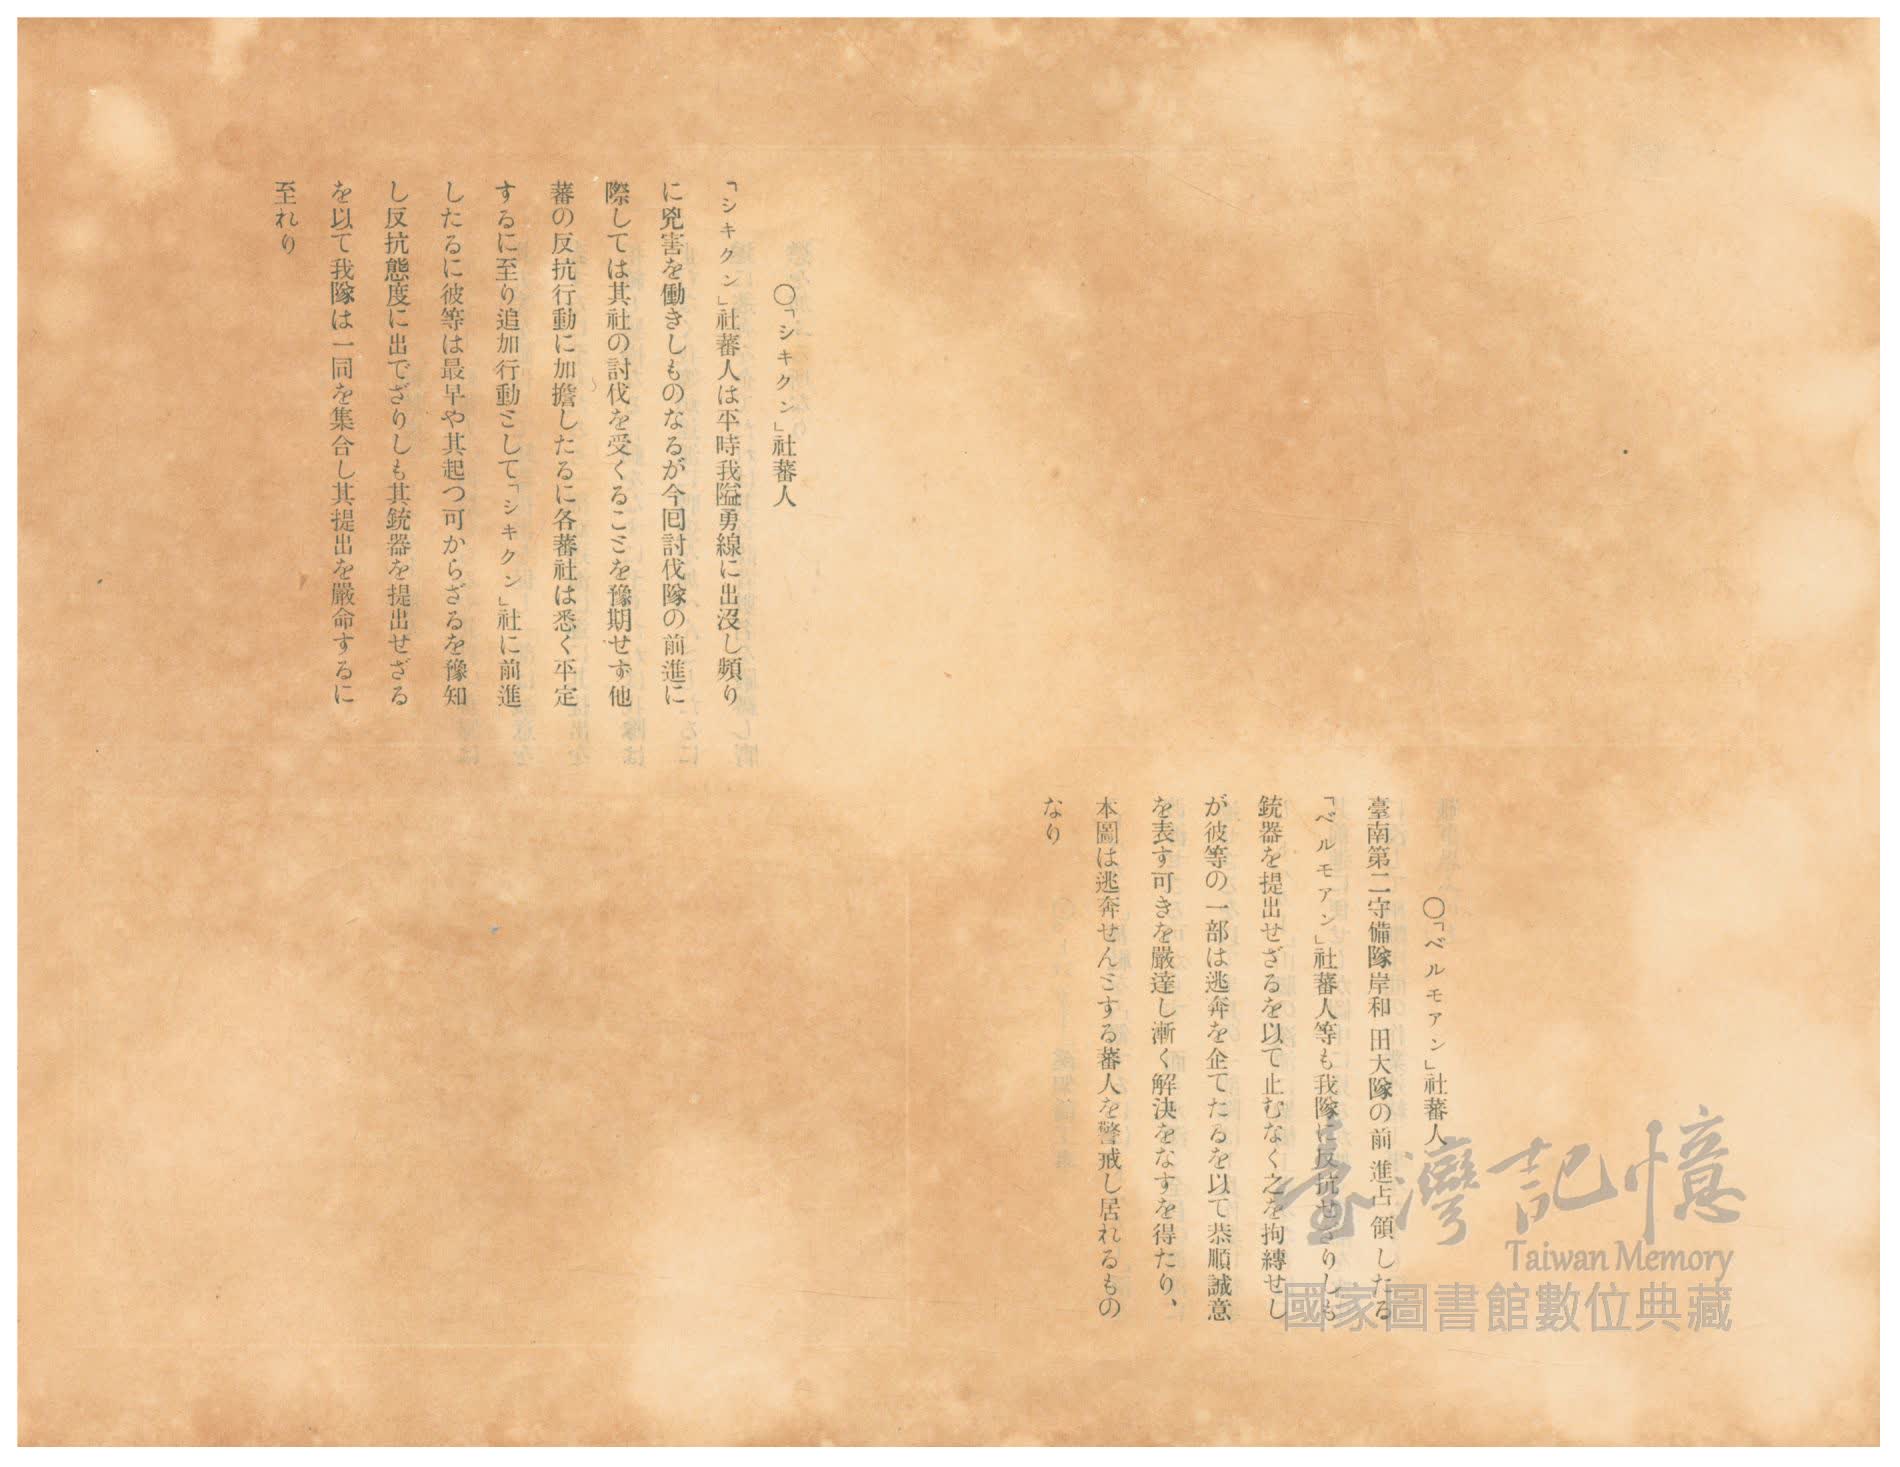 〇「シキクン」社蕃人
「シキクン」社蕃人は平時我隘勇線に出沒し頻り
に兇害を働きしものなるが今囘討伐隊の前進に
際しては其社の討伐を受くることを豫期せず他
蕃の反抗行動に加擔したるに各蕃社は悉く平定
するに至り追加行動として「シキクン」社に前進
したるに彼等は最早や其起つ可からざるを豫知
し反抗態度に出でざりしも其銃器を提出せざる
を以て我隊は一同を集合し其提出を嚴命するに
至れり
〇「ベルモアン」社蕃人
臺南第二守備隊岸和田大隊の前進占領したる
「ベルモアン」社蕃人等も我隊に反抗せざりしも
銃器を提出せざるを以て止むなく之を拘縛せし
が彼等の一部は逃奔を企てたるを以て恭順誠意
を表す可きを嚴達し漸く解決をなすを得たり、
本圖は逃奔せんとする蕃人を警戒し居れるもの
なり
臺灣記憶
Taiwan Memory
國家圖書館數位典藏